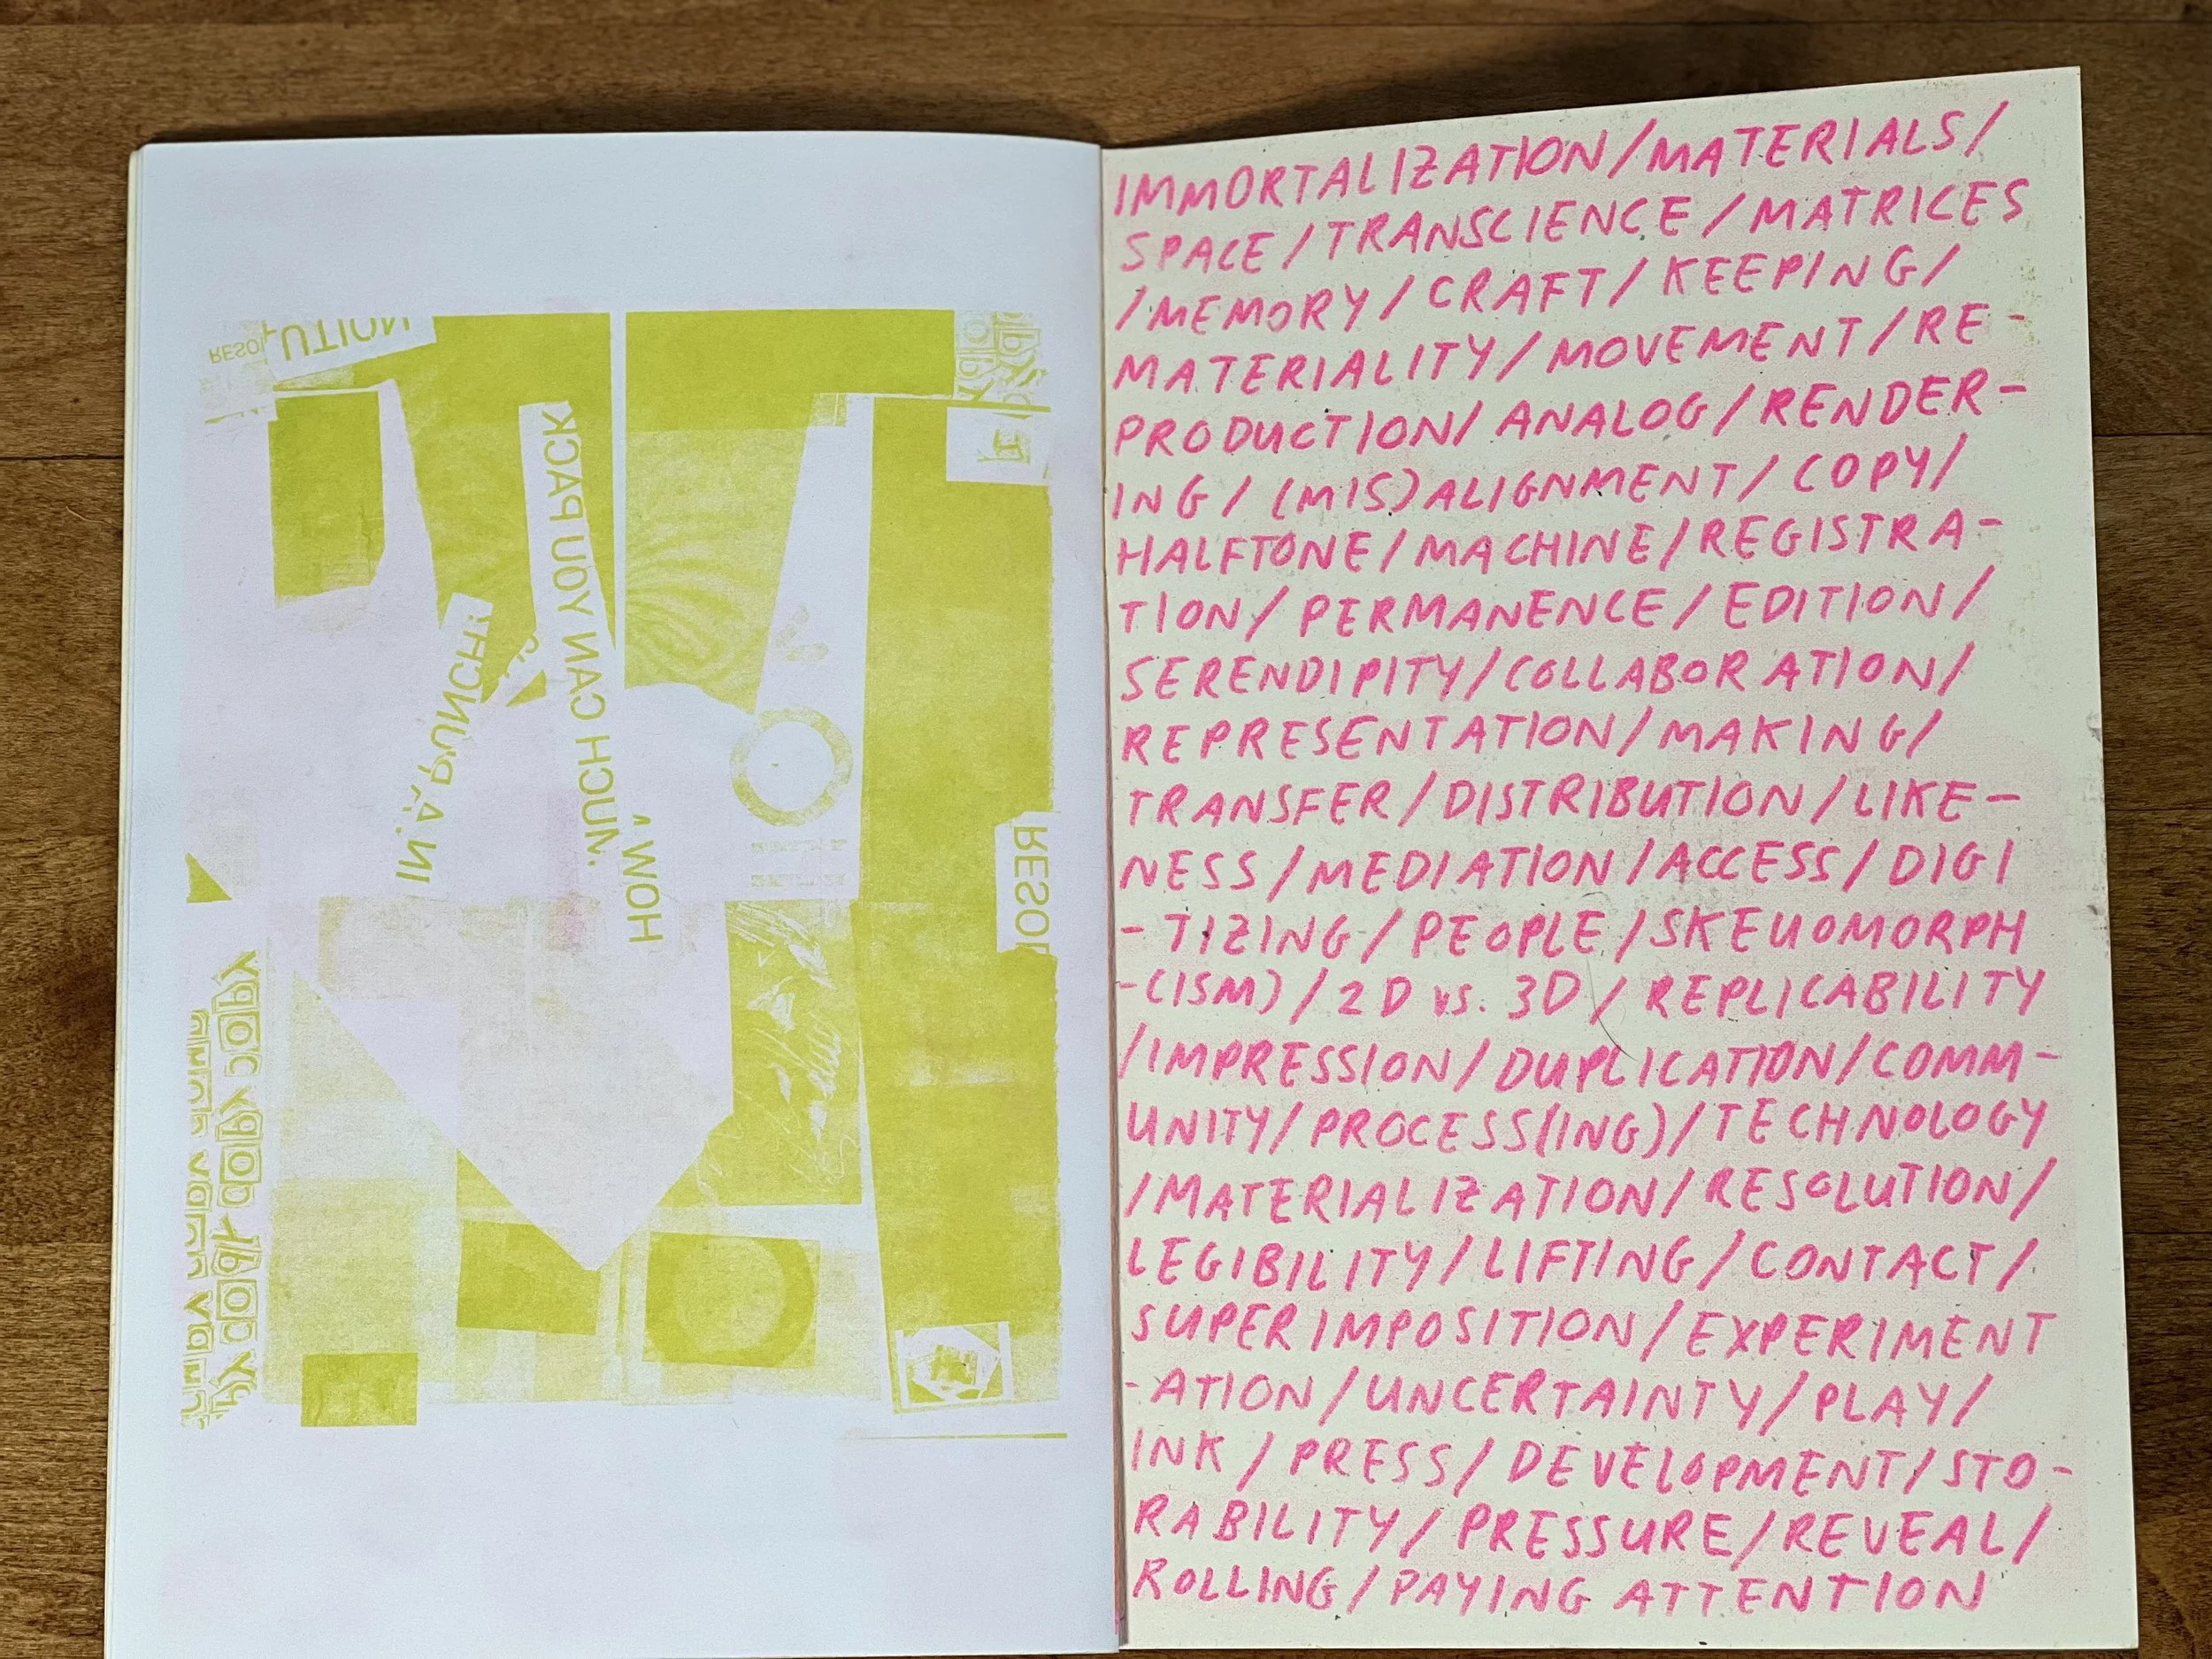 RESOL
UTION
HOW
MUCH CAN YOU PACK
IN A PUNCH!
RESOL
IMMORTALIZATION/MATERIALS/
SPACE/TRANSCIENCE/MATRICES
/MEMORY/CRAFT/KEEPING/
MATERIALITY/MOVEMENT/RE-
PRODUCTION/ANALOG/RENDER-
ING/(MIS)ALIGNMENT/COPY/
HALFTONE/MACHINE/REGISTRA-
TION/PERMANENCE/EDITION/
SERENDIPITY/COLLABORATION/
REPRESENTATION/MAKING/
TRANSFER/DISTRIBUTION/LIKE-
NESS/MEDIATION/ACCESS/DIGI
-TIZING/PEOPLE/SKEUOMORPH
-(ISM)/2D vs. 3D/REPLICABILITY
/IMPRESSION/DUPLICATION/COMM-
UNITY/PROCESS(ING)/TECHNOLOGY
/MATERIALIZATION/RESOLUTION/
LEGIBILITY/LIFTING/CONTACT/
SUPERIMPOSITION/EXPERIMENT
-ATION/UNCERTAINTY/PLAY/
INK/PRESS/DEVELOPMENT/STO-
RABILITY/PRESSURE/REVEAL/
ROLLING/PAYING ATTENTION